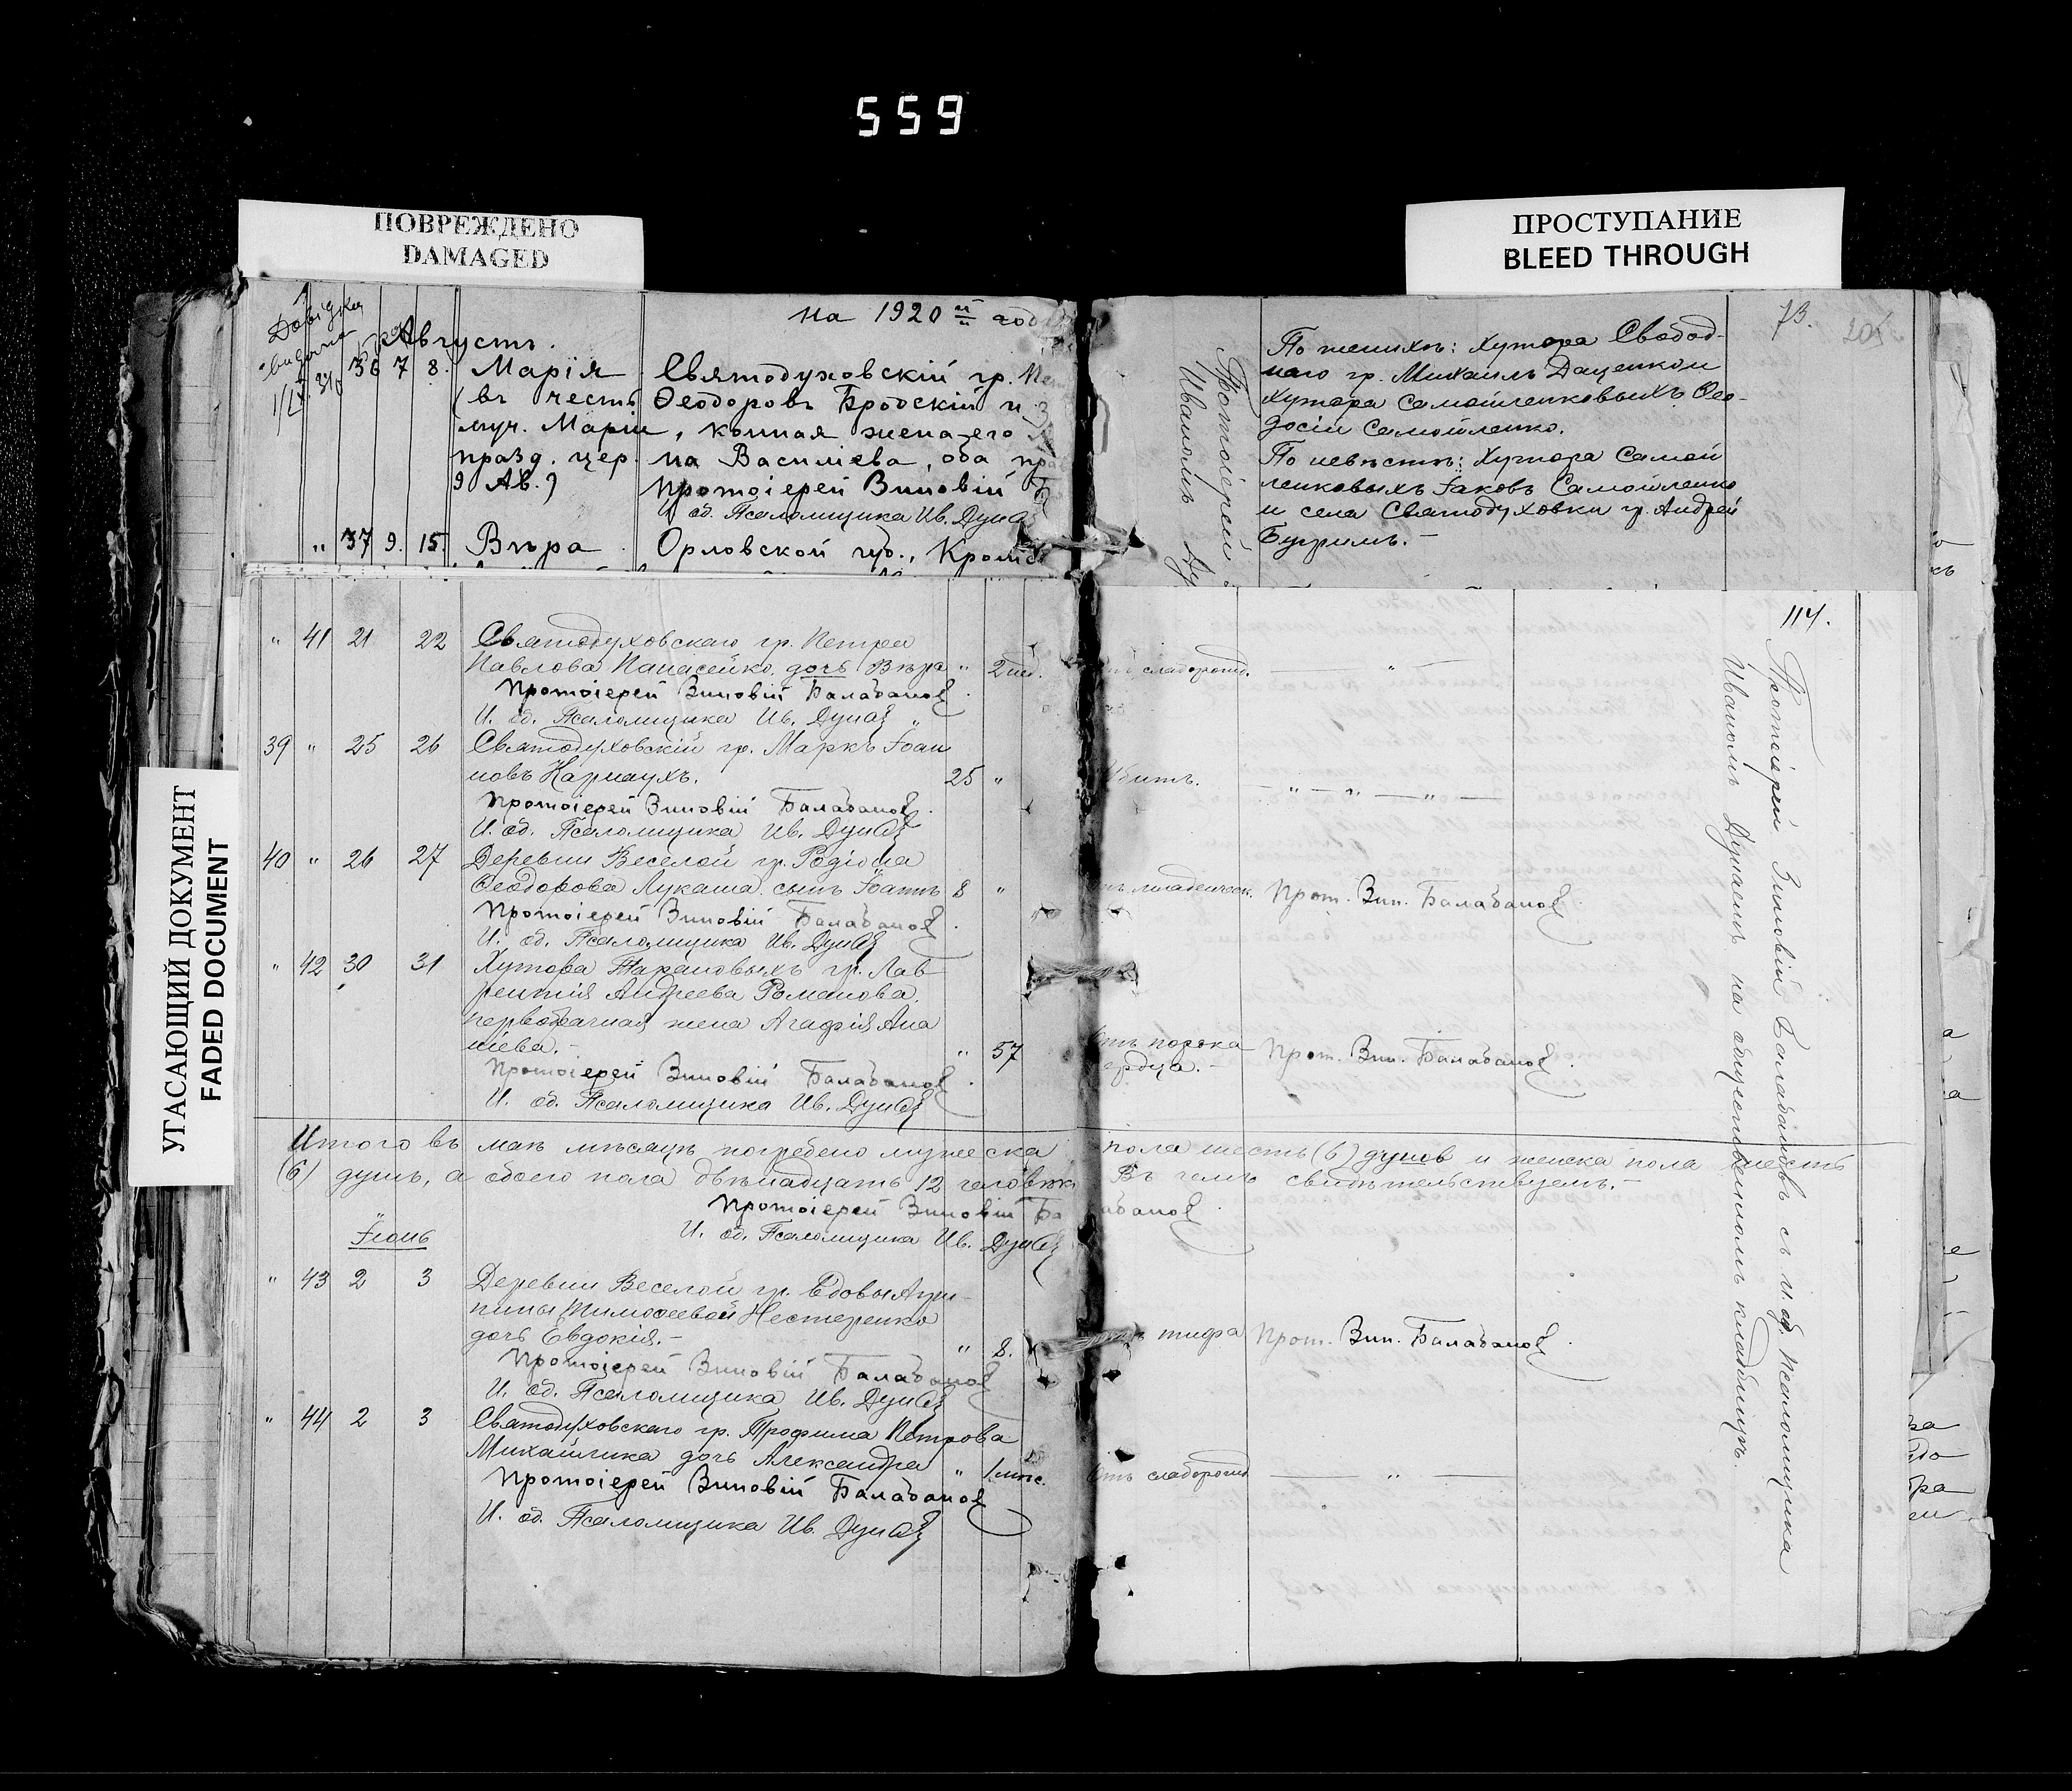 559
ПОВРЕЖДЕНО
DAMAGED
ПРОСТУПАНИЕ
BLEED THROUGH
УГАСАЮЩИЙ ДОКУМЕНТ
FADED DOCUMENT
на 1920 й годъ
Августъ.
36 7 8. Марія Святодуховскій гр.
(въ честь Ѳеодоровъ Бродскій и
муч. Маріи, конная жена его
празд. цер. на Василіева, оба
9 Ав.) Протоіерей Зиновій
И. об. Псаломщика Ив. Дунай
" 37 9. 15. Вѣра Орловской губ.,
73.
205
По женихѣ: Хутора Свобод-
наго гр. Михаилъ Даценко и
Хутора Самойленковыхъ Ѳео-
досій Самойленко.
По невѣстѣ: Хутора Самой
ленковыхъ Іаковъ Самойленко
и села Святодуховки гр. Андрей
Бугримъ.-
Протоіерей
Иваномъ
" 41 21 22 Святодуховскаго гр. Петра
Павлова Панасейко, дочь Вѣра " 2 нд. слаборожд. — " —
Протоіерей Зиновій Балабановъ
И. об. Псаломщика Ив. Дунай
39 " 25 26 Святодуховскій гр. Маркъ Іоан
новъ Кармаухъ. 25 " Убитъ. — " — " — " —
Протоіерей Зиновій Балабановъ.
И. об. Псаломщика Ив. Дунай
40 " 26 27 Деревни Веселой гр. Родіона
Ѳеодорова Лукаша сынъ Іоаннъ 8 " младенческ. Прот. Зин. Балабановъ.
Протоіерей Зиновій Балабановъ.
И. об. Псаломщика Ив. Дунай
" 42 30 31 Хутора Тарановыхъ гр. Лав
рентія Андреева Романова,
первобрачная жена Агафія Ана
ніева.- " 57 отъ порока Прот. Зин. Балабановъ.
сердца.-
Протоіерей Зиновій Балабановъ.
И. об. Псаломщика Ив. Дунай
Итого въ маѣ мѣсяцѣ погребено мужеска пола шесть (6) душъ и женска пола шесть
(6) душъ, а обоего пола двѣнадцать 12 человѣкъ Въ чемъ свидѣтельствуемъ.-
Протоіерей Зиновій Балабановъ.
И. об. Псаломщика Ив. Дунай
Іюнь
" 43 2 3 Деревни Веселой гр. Вдовы Агри-
пины Тимоѳеевой Нестеренко
дочь Евдокія.- " 8. тифа Прот. Зин. Балабановъ.
Протоіерей Зиновій Балабановъ
И. об. Псаломщика Ив. Дунай
" 44 2 3 Святодуховскаго гр. Трофима Петрова
Михайлика дочь Александра " 1 мѣс. Отъ слаборожд. — " —
Протоіерей Зиновій Балабановъ
И. об. Псаломщика Ив. Дунай
114.
Протоіерей Зиновій Балабановъ съ и. об. Псаломщика
Иваномъ Дунаемъ на общественномъ кладбищѣ.